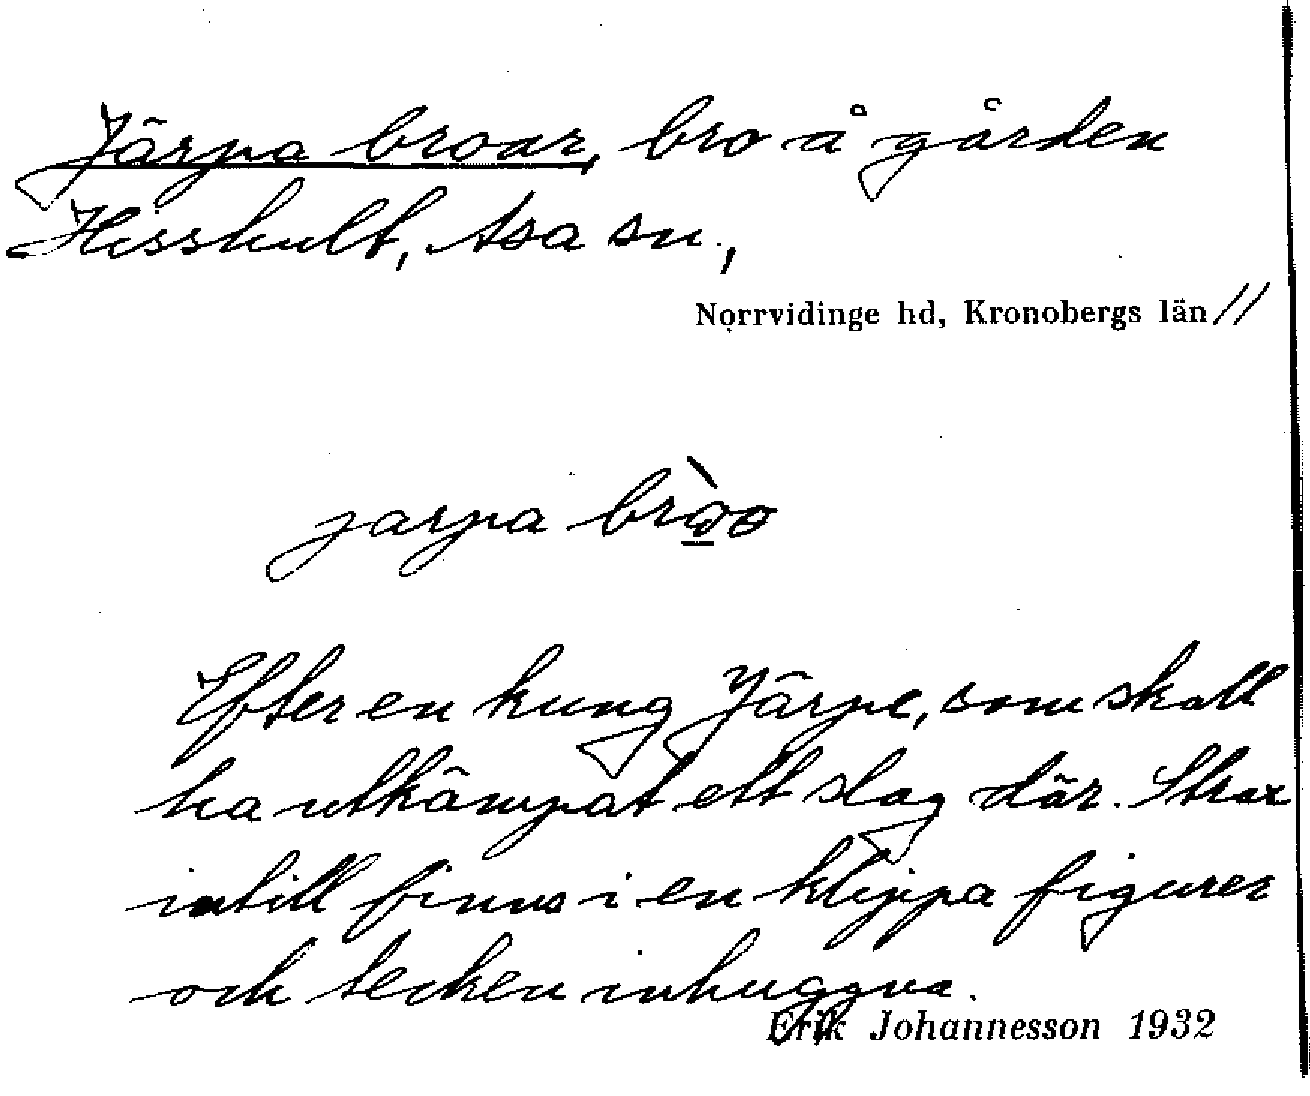 Järpa broar, bro å gården
Hisskult, Asa sn.,
Norrvidinge hd, Kronobergs län //
jarpa
Efter en kung Järpe, som skall
ha utkämpat ett slag där. Strax
intill finns i en klippa figurer
och tecken inhuggna.
Erik Johannesson 1932